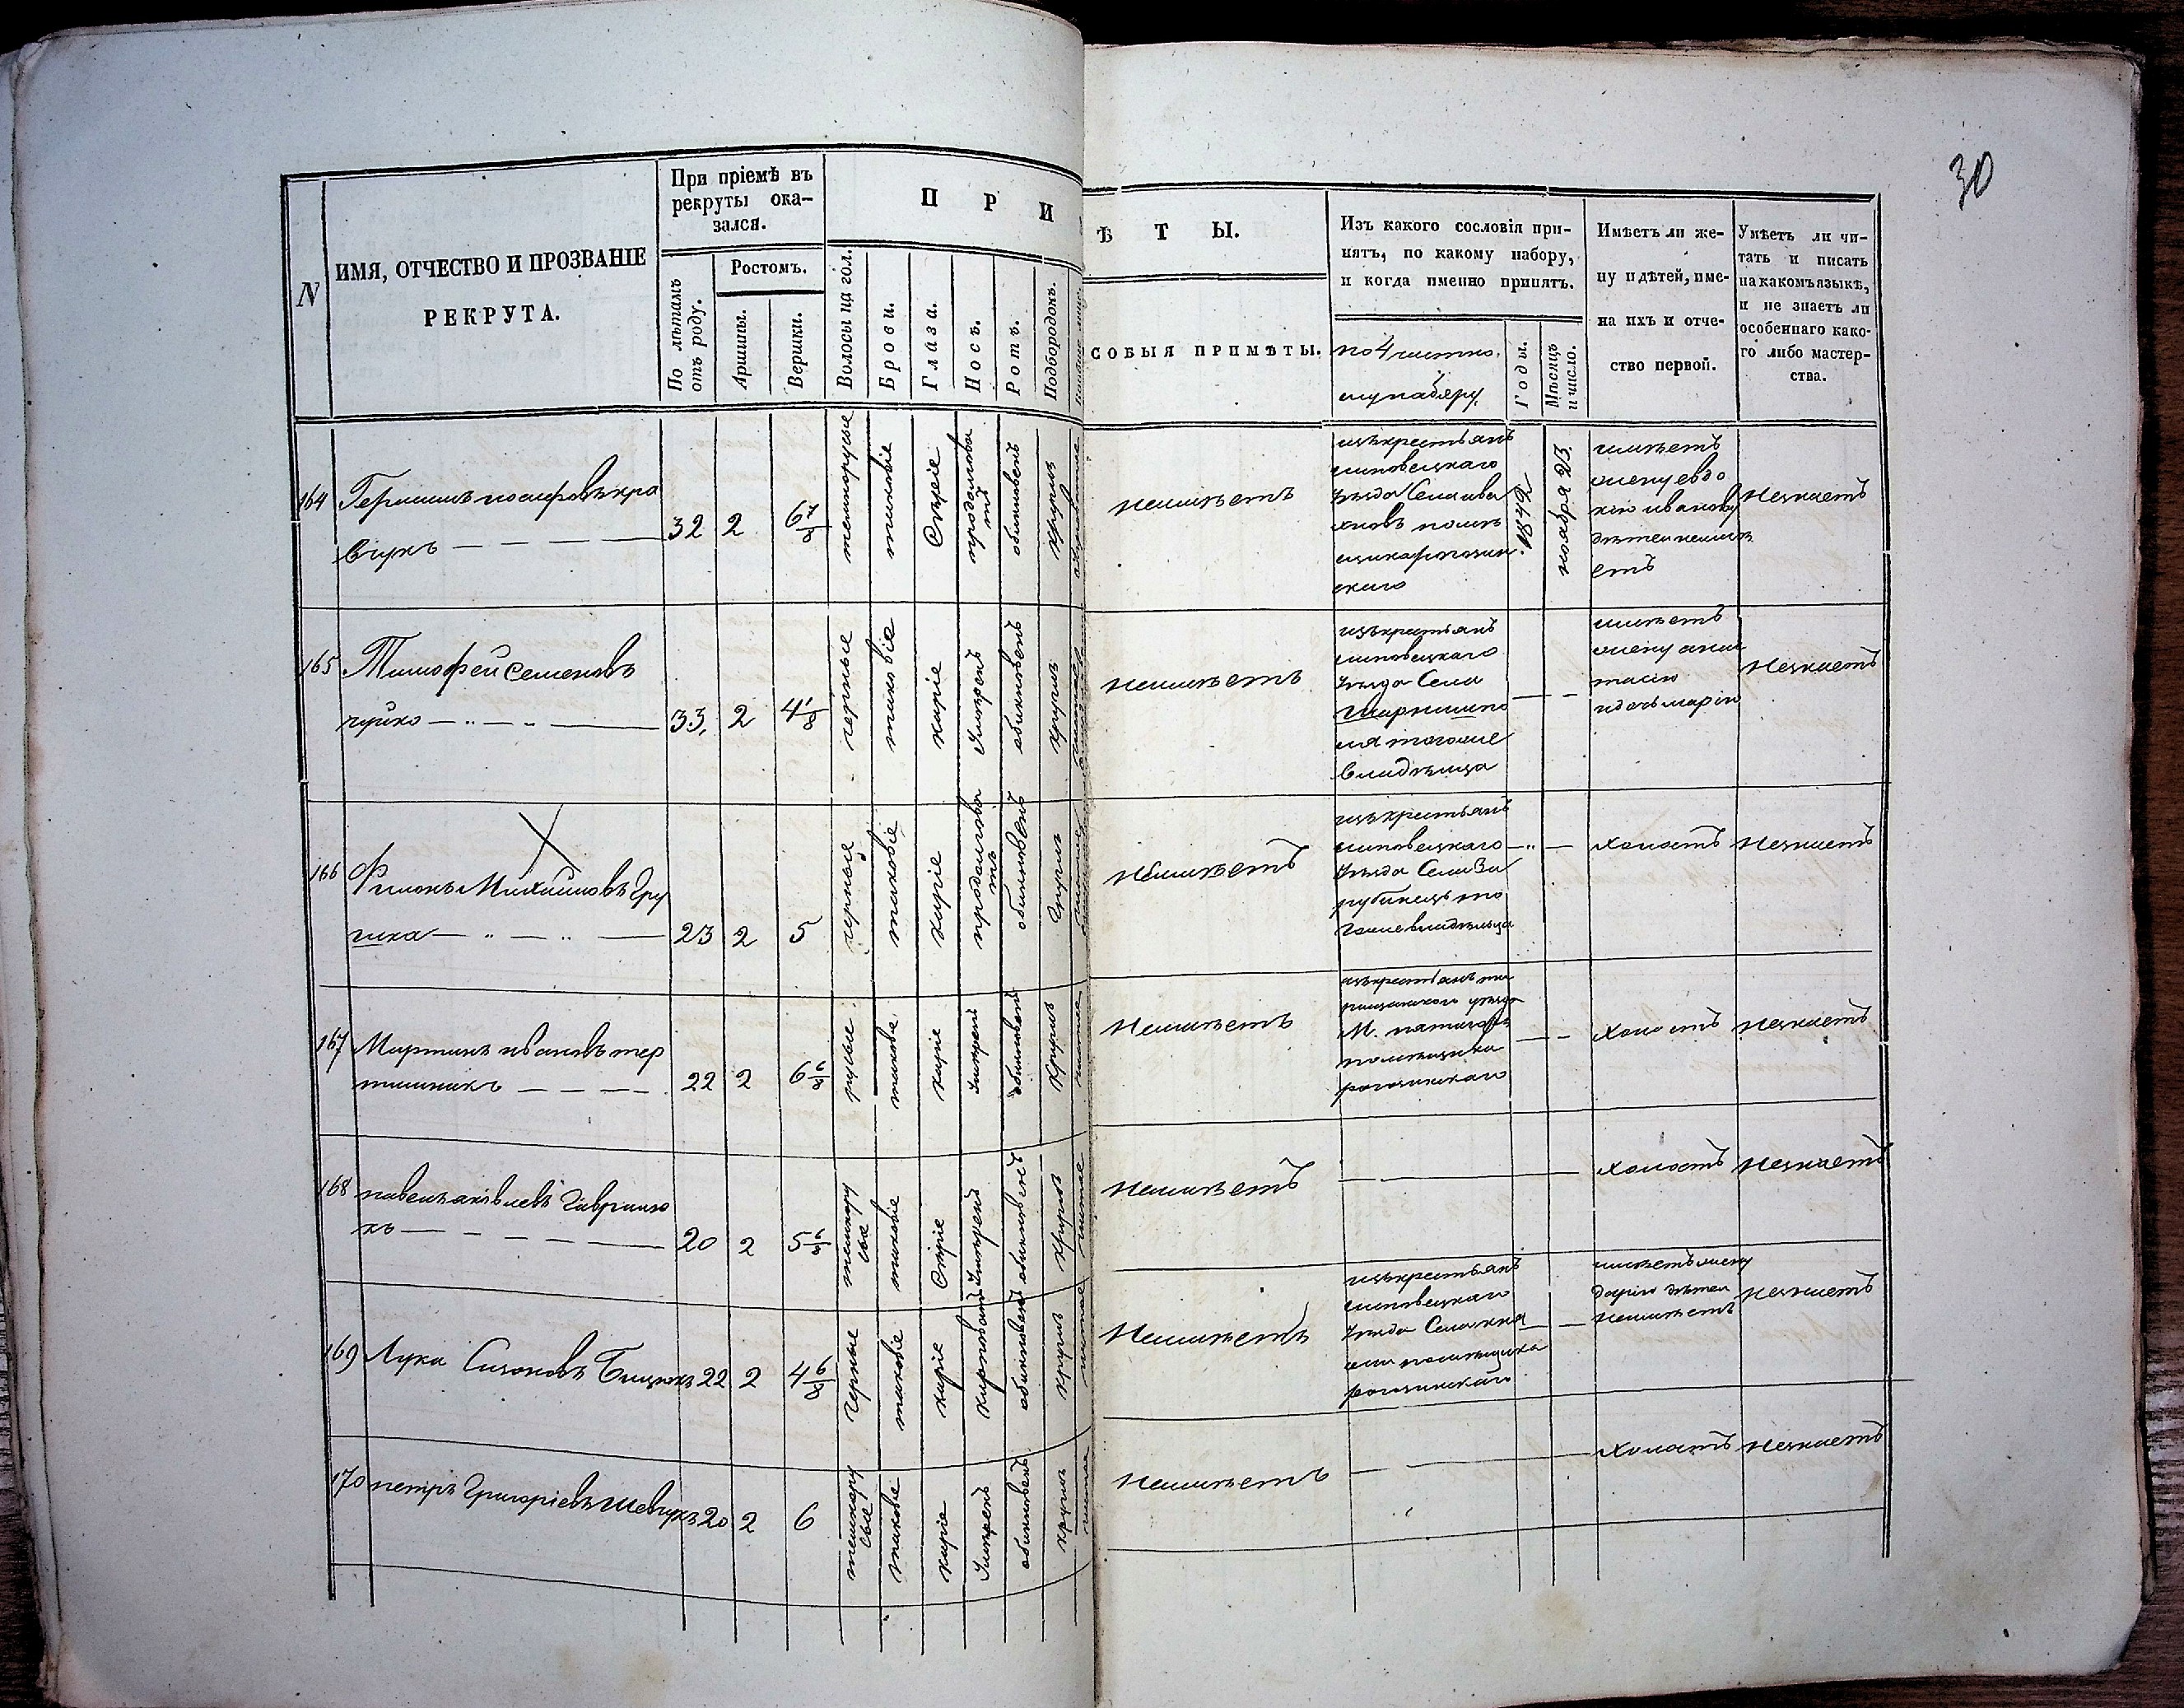 30
N
ИМЯ, ОТЧЕСТВО И ПРОЗВАНІЕ
РЕКРУТА.
При пріемѣ въ
рекруты ока-
зался.
По лѣтамъ
отъ роду.
Ростомъ.
Аршины.
Вершки.
П Р И
Ѣ Т Ы.
Волосы на гол.
Брови.
Глаза.
Носъ.
Ротъ.
Подбородокъ.
СОБЫЯ ПРИМѢТЫ.
Изъ какого сословія при-
нятъ, по какому набору,
и когда именно принятъ.
по 4 частно
му набору
Годы.
Мѣсяцъ
и число.
Имѣетъ ли же-
ну и дѣтей, име-
на ихъ и отче-
ство первой.
Умѣетъ ли чи-
тать и писать
на какомъ языкѣ,
и не знаетъ ли
особеннаго како-
го либо мастер-
ства.
164
Герасимъ иосифовъ кра
вчукъ
32
2
6 7/8
темнорусые
таковіе
Сѣріе
продолгова
тъ
обикновенъ
круглъ
неимѣетъ
изъ крестьянъ
липовецкаго
уѣзда Села ива
хновъ помѣ
щика рогозин
скаго
1842
ноября 23
имѣетъ
жену евдо
кію иванову
дѣтей неимѣ
етъ
Незнаетъ
165
Тимофей Семеновъ
чуйко
33
2
4 1/8
черные
таковіе
каріе
Умѣренъ
обикновенъ
круглъ
неимѣетъ
изъ крестьянъ
липовецкаго
уѣзда Села
тогоже
владѣльца
имѣетъ
жену анас
тасію
и дочь марію
Незнаетъ
166
Филонъ Михайловъ Гру
шка
23
2
5
черные
таковіе
каріе
продолгова
тъ
обикновенъ
круглъ
неимѣетъ
изъ крестьянъ
липовецкаго
уѣзда Села За
рубинецъ то
гоже владѣльца
холостъ
Незнаетъ
167
Мартинъ ивановъ тер
тишникъ
22
2
6 6/8
русые
таковіе
каріе
Умѣренъ
обикновенъ
круглъ
Неимѣетъ
изъ крестьянъ та
ращанскаго уѣзда
М.
помѣщика
рогозинскаго
холостъ
Незнаетъ
168
павелъ яковлевъ Гаврилю
къ
20
2
5 6/8
темнору
сые
таковіе
Сѣріе
Умѣренъ
обикновенъ
круглъ
Неимѣетъ
холостъ
Незнаетъ
169
Лука Сизоновъ
22
2
4 6/8
Черные
таковіе
каріе
обикновенъ
круглъ
Неимѣетъ
изъ крестьянъ
липовецкаго
уѣзда Села кня
жи помѣщика
рогозинскаго
имѣетъ жену
дарію дѣтей
неимѣетъ
Незнаетъ
170
петръ Григоріевъ шевчукъ
20
2
6
темнору
сые
таковіе
каріе
Умѣренъ
обикновенъ
круглъ
Неимѣетъ
холостъ
Незнаетъ